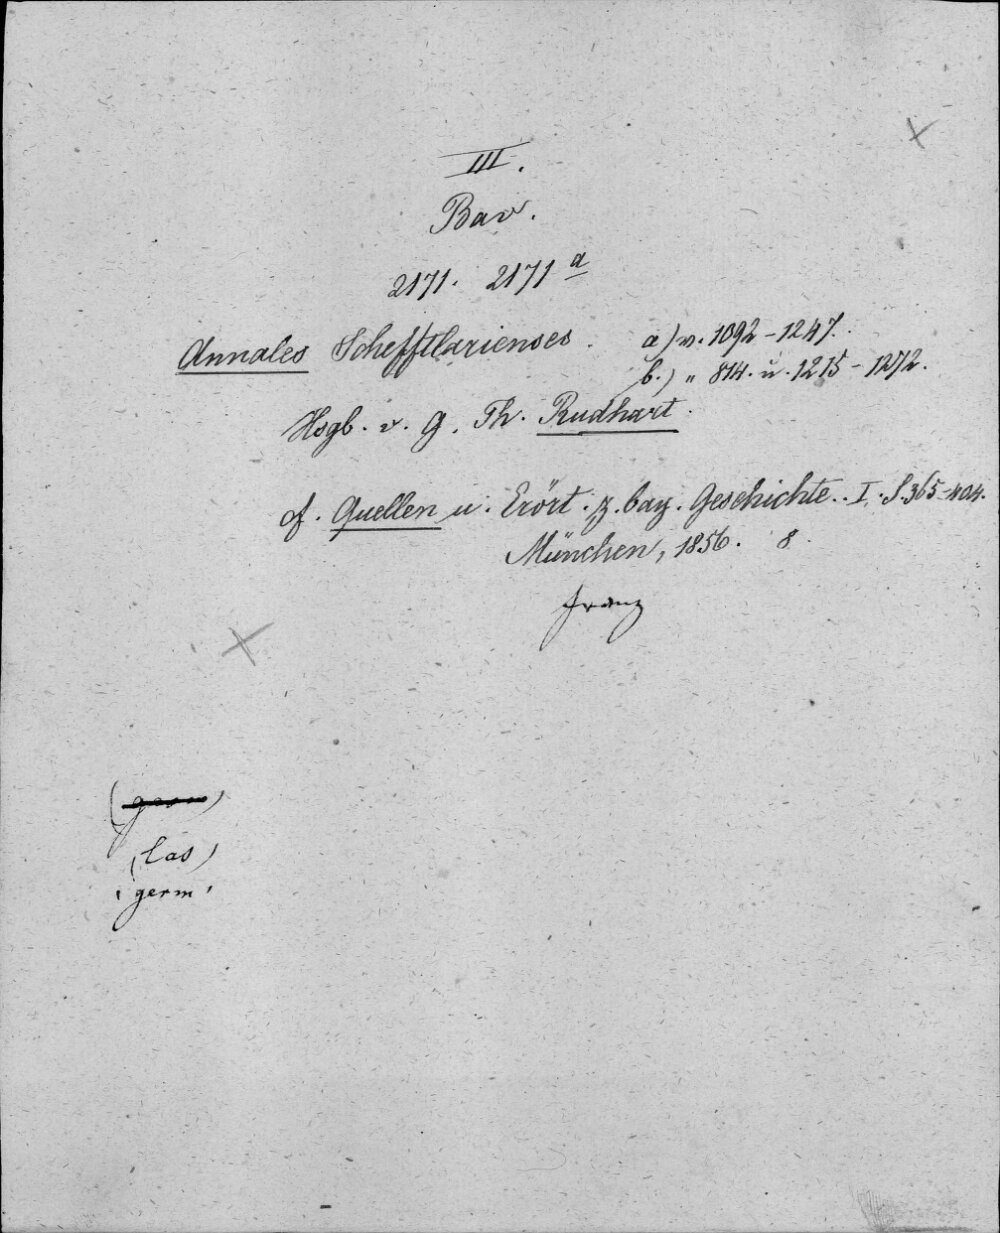 III.
Bav.
2171. 2171 a
Annales Schefftlarienses. a) v. 1092-1247.
b.) " 814. u. 1215-1272.
Hsgb. v. G. Th. Rudhart.
cf. Quellen u. Erört. z. bay. Geschichte.. I. S. 365-404.
München, 1856. 8.
franz
(germ)
(las)
(germ)